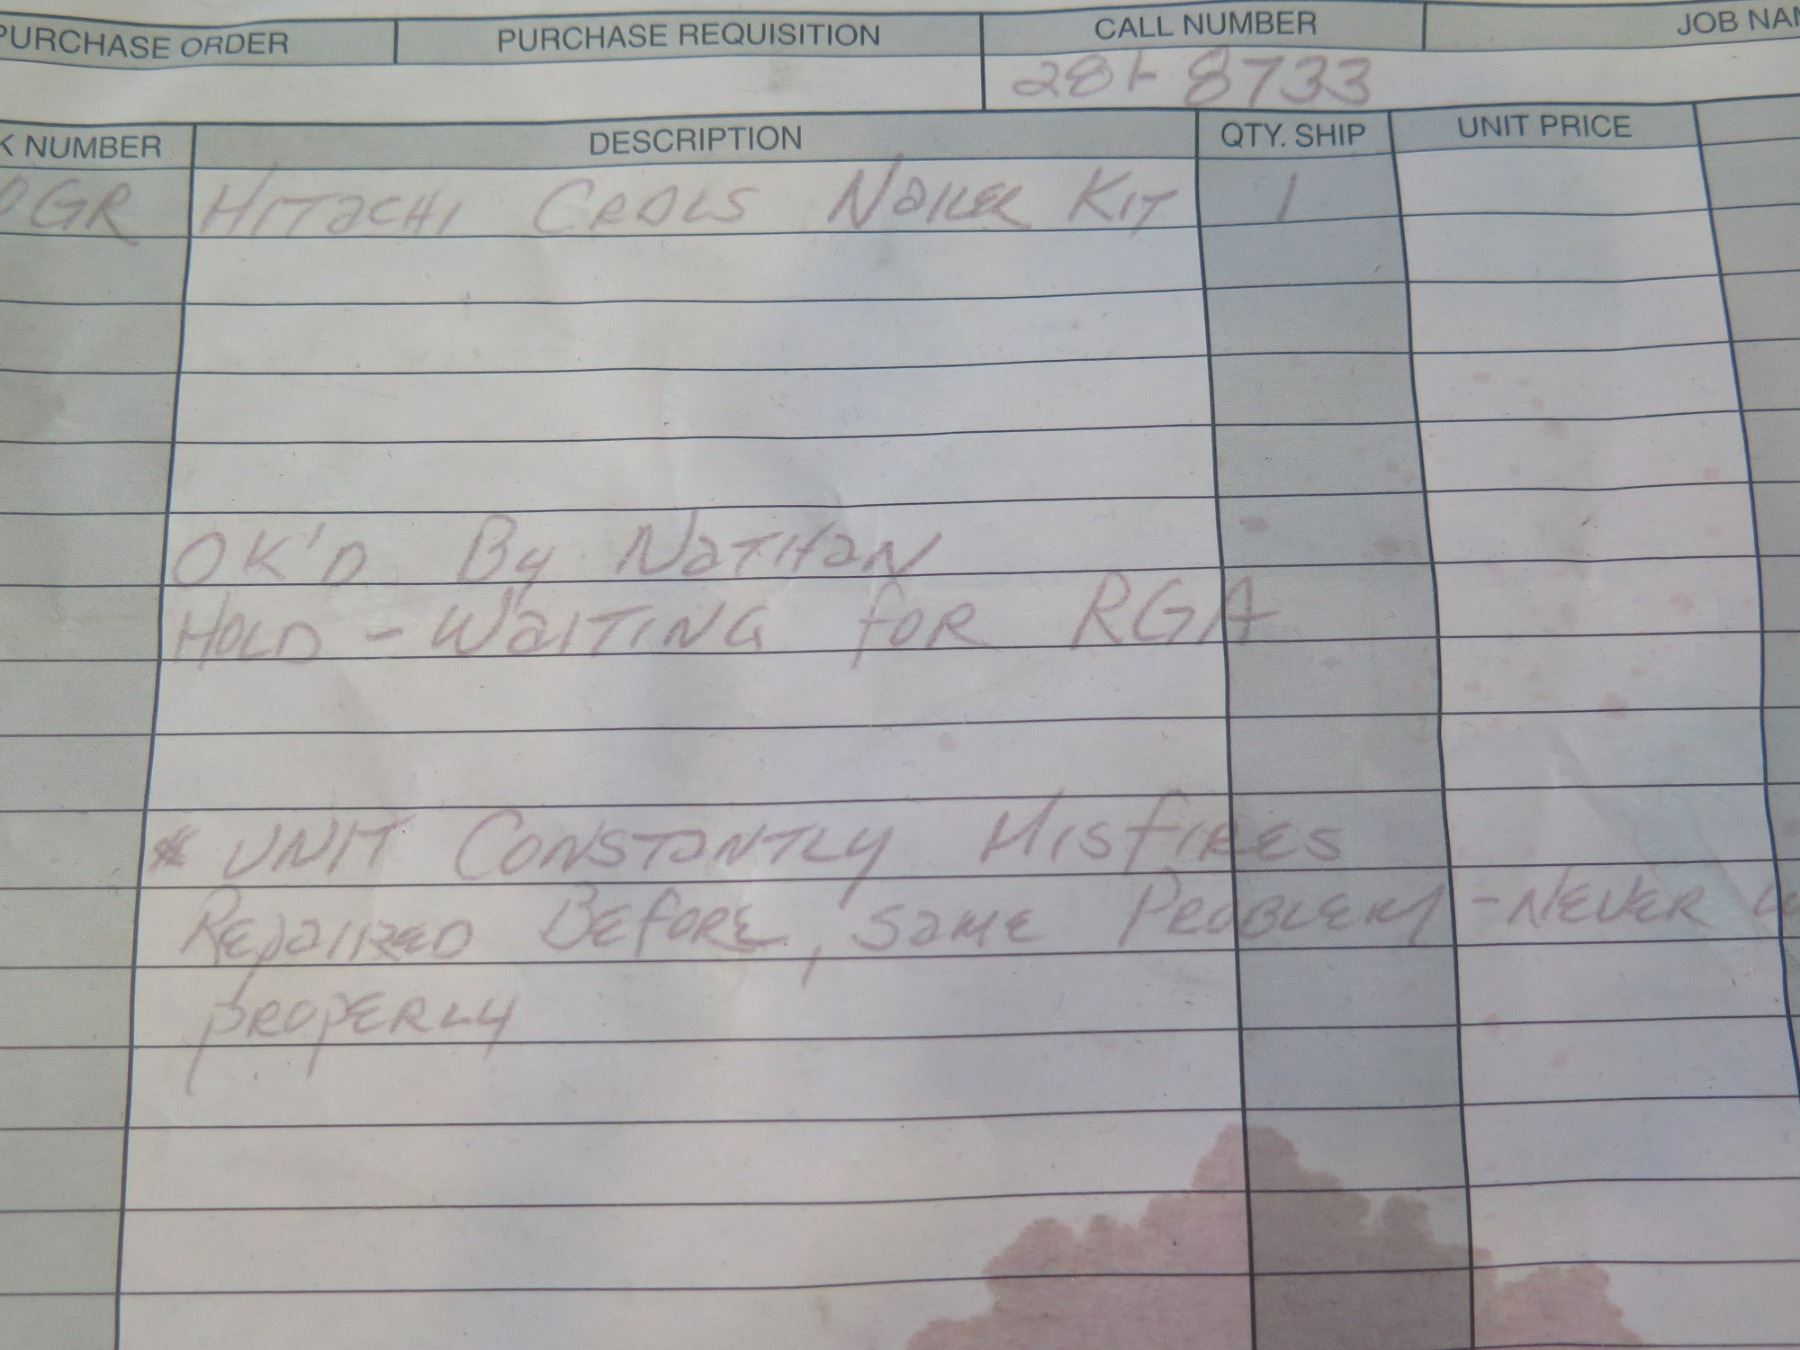 PURCHASE ORDER PURCHASE REQUISITION CALL NUMBER JOB NAM
281-8733
K NUMBER DESCRIPTION QTY. SHIP UNIT PRICE
OGR HITACHI CRDLS NAILER KIT 1
OK'D By NATHAN
HOLD - WAITING FOR RGA
* UNIT CONSTANTLY MISFIRES
REPAIRED BEFORE, SAME PROBLEM - NEVER
PROPERLY